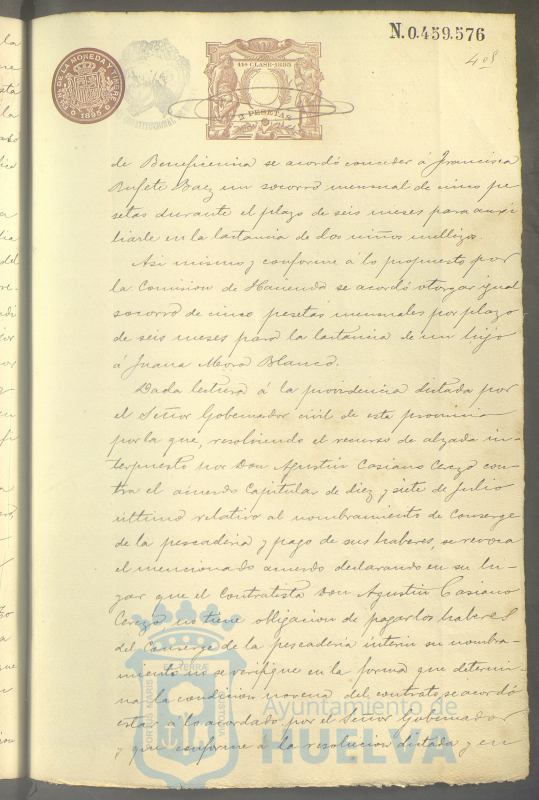 N.0.459.576
408
11ª CLASE-1895
2 PESETAS
1895
de Beneficencia se acordó conceder á Francisca
Rufete Baez un socorro mensual de cinco pe-
setas durante el plazo de seis meses para auxi-
liarle en la lactancia de dos niños mellizos.
Asi mismo y conforme á lo propuesto por
la Comision de Hacienda se acordó otorgar igual
socorro de cinco pesetas mensuales por plazo
de seis meses para la lactancia de un hijo
á Juana Mora Blanco.
Dada lectura á la providencia dictada por
el Señor Gobernador civil de esta provincia
por la que, resolviendo el recurso de alzada in-
terpuesto por Don Agustin Casiano Cerezo con-
tra el acuerdo Capitular de diez y siete de Julio
último relativo al nombramiento de Conserge
de la pescaderia y pago de sus haberes, se revoca
el mencionado acuerdo declarando en su lu-
gar que el Contratista Don Agustin Casiano
Cerezo no tiene obligacion de pagar los haberes
del Conserge de la pescaderia interin su nombra-
miento no se verifique en la forma que determi-
na la condicion novena del contrato, se acordó
estar á lo acordado por el Señor Gobernador
y que conforme á la resolucion dictada y en
Ayuntamiento de
HUELVA